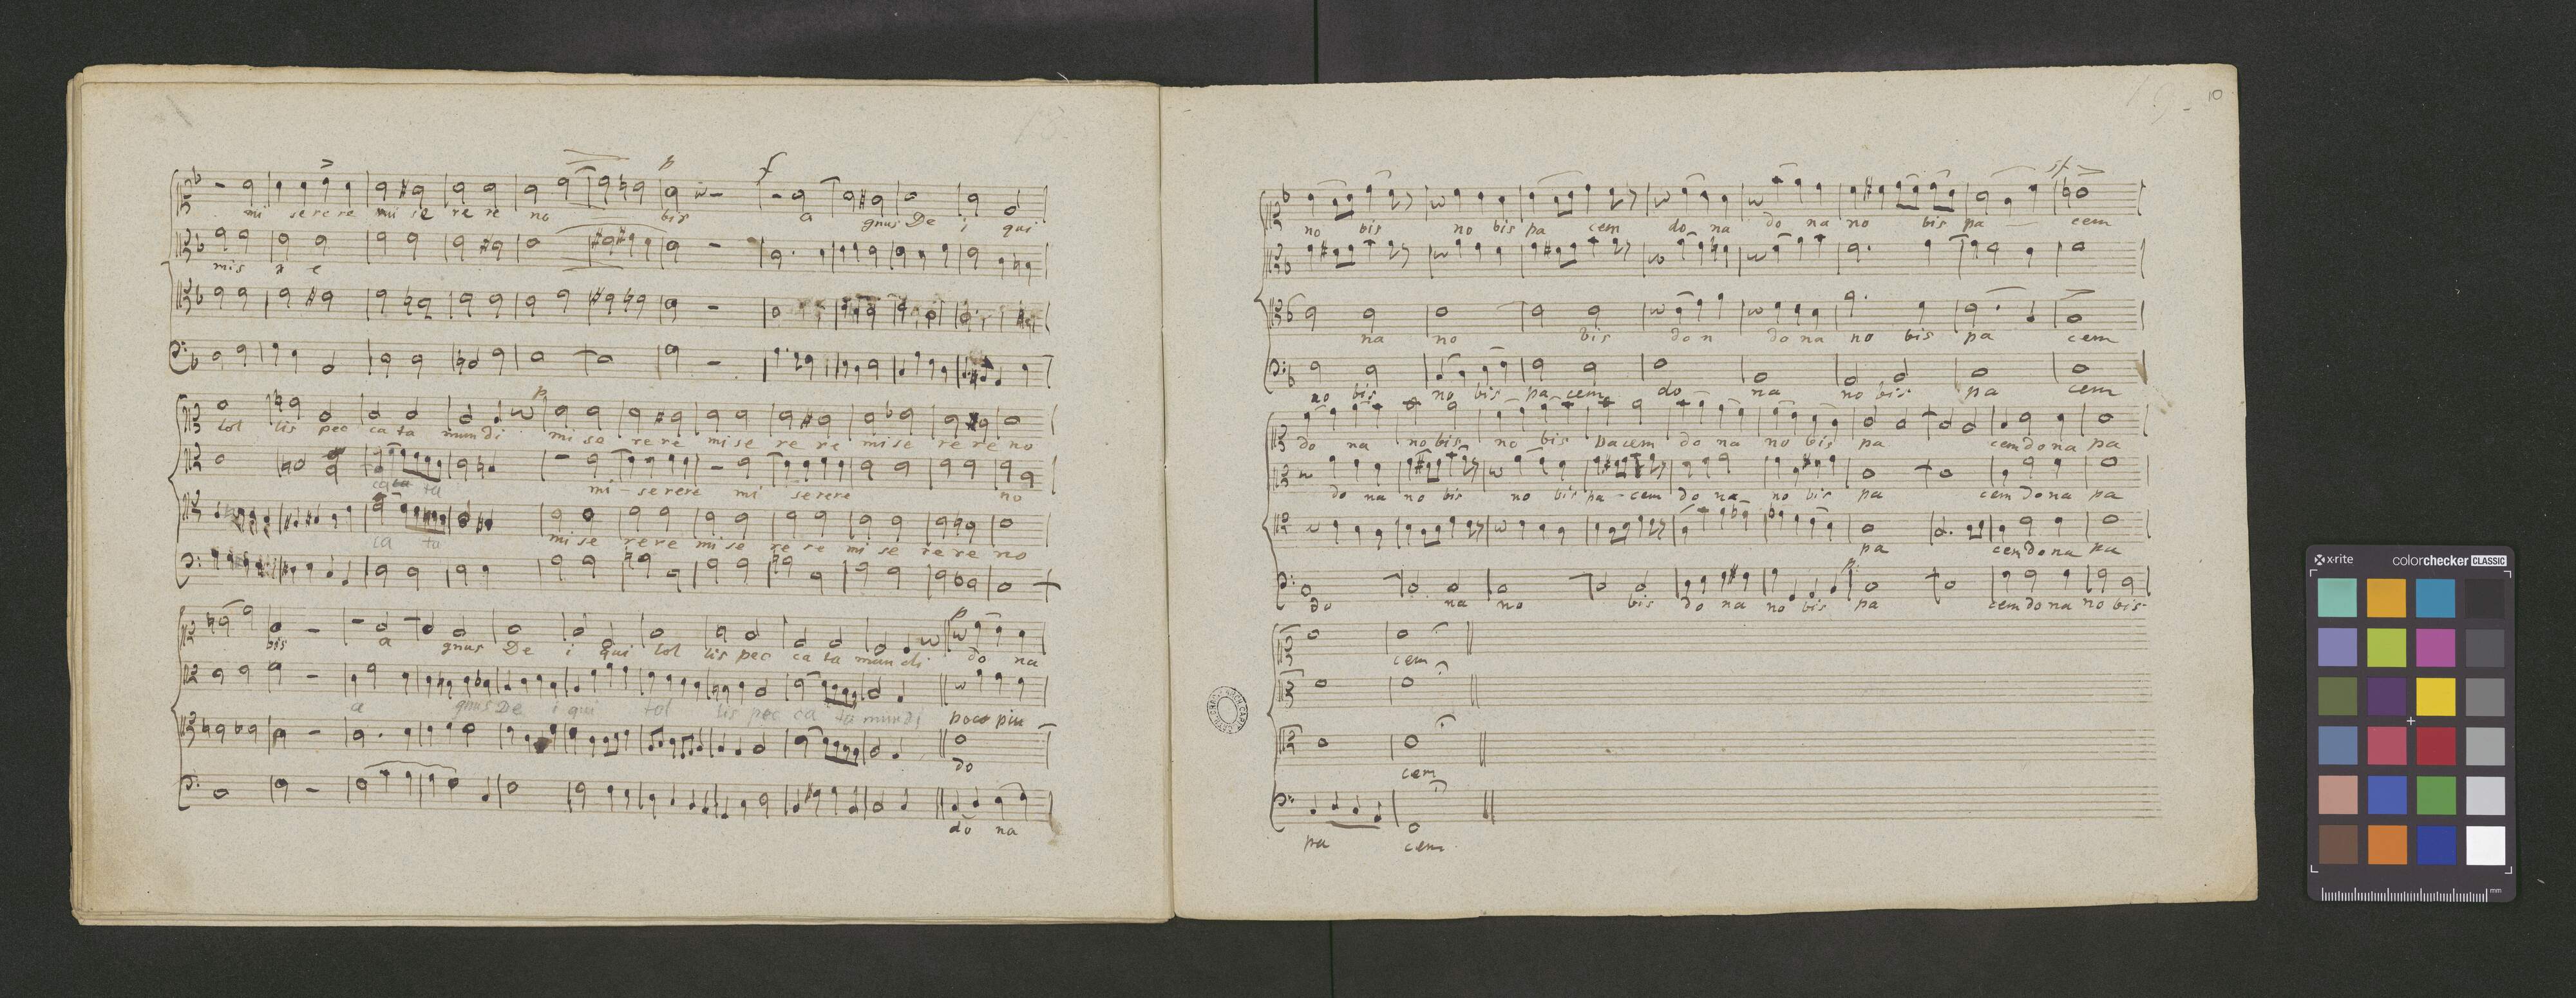 p f
mi se re re mi se re re no bis a gnus De i qui
mis
p
tol lis pec ca ta mun di mi se re re mi se re re mi se re re no
ca ta ta mi - se rere mi se rere no
ca ta mi se re re mi se re re mi se re re no
p
bis a gnus De i qui tol lis pec ca ta mun di do na
a gnus De i qui tol lis pec ca ta mundi poco piu
do
do na
10
sf
no bis no bis pa cem do na do na no bis pa cem
na no bis do n do na no bis pa cem
no bis no bis pa cem do na no bis pa cem
do na no bis no bis pacem do na no bis pa cem do na pa
do na no bis no bis pa - cem do na no bis pa cem do na pa
pa cem do na pa
p
do na no bis do na no bis pa cem do na no bis
cem
cem
pa cem
x-rite colorchecker CLASSIC
mm